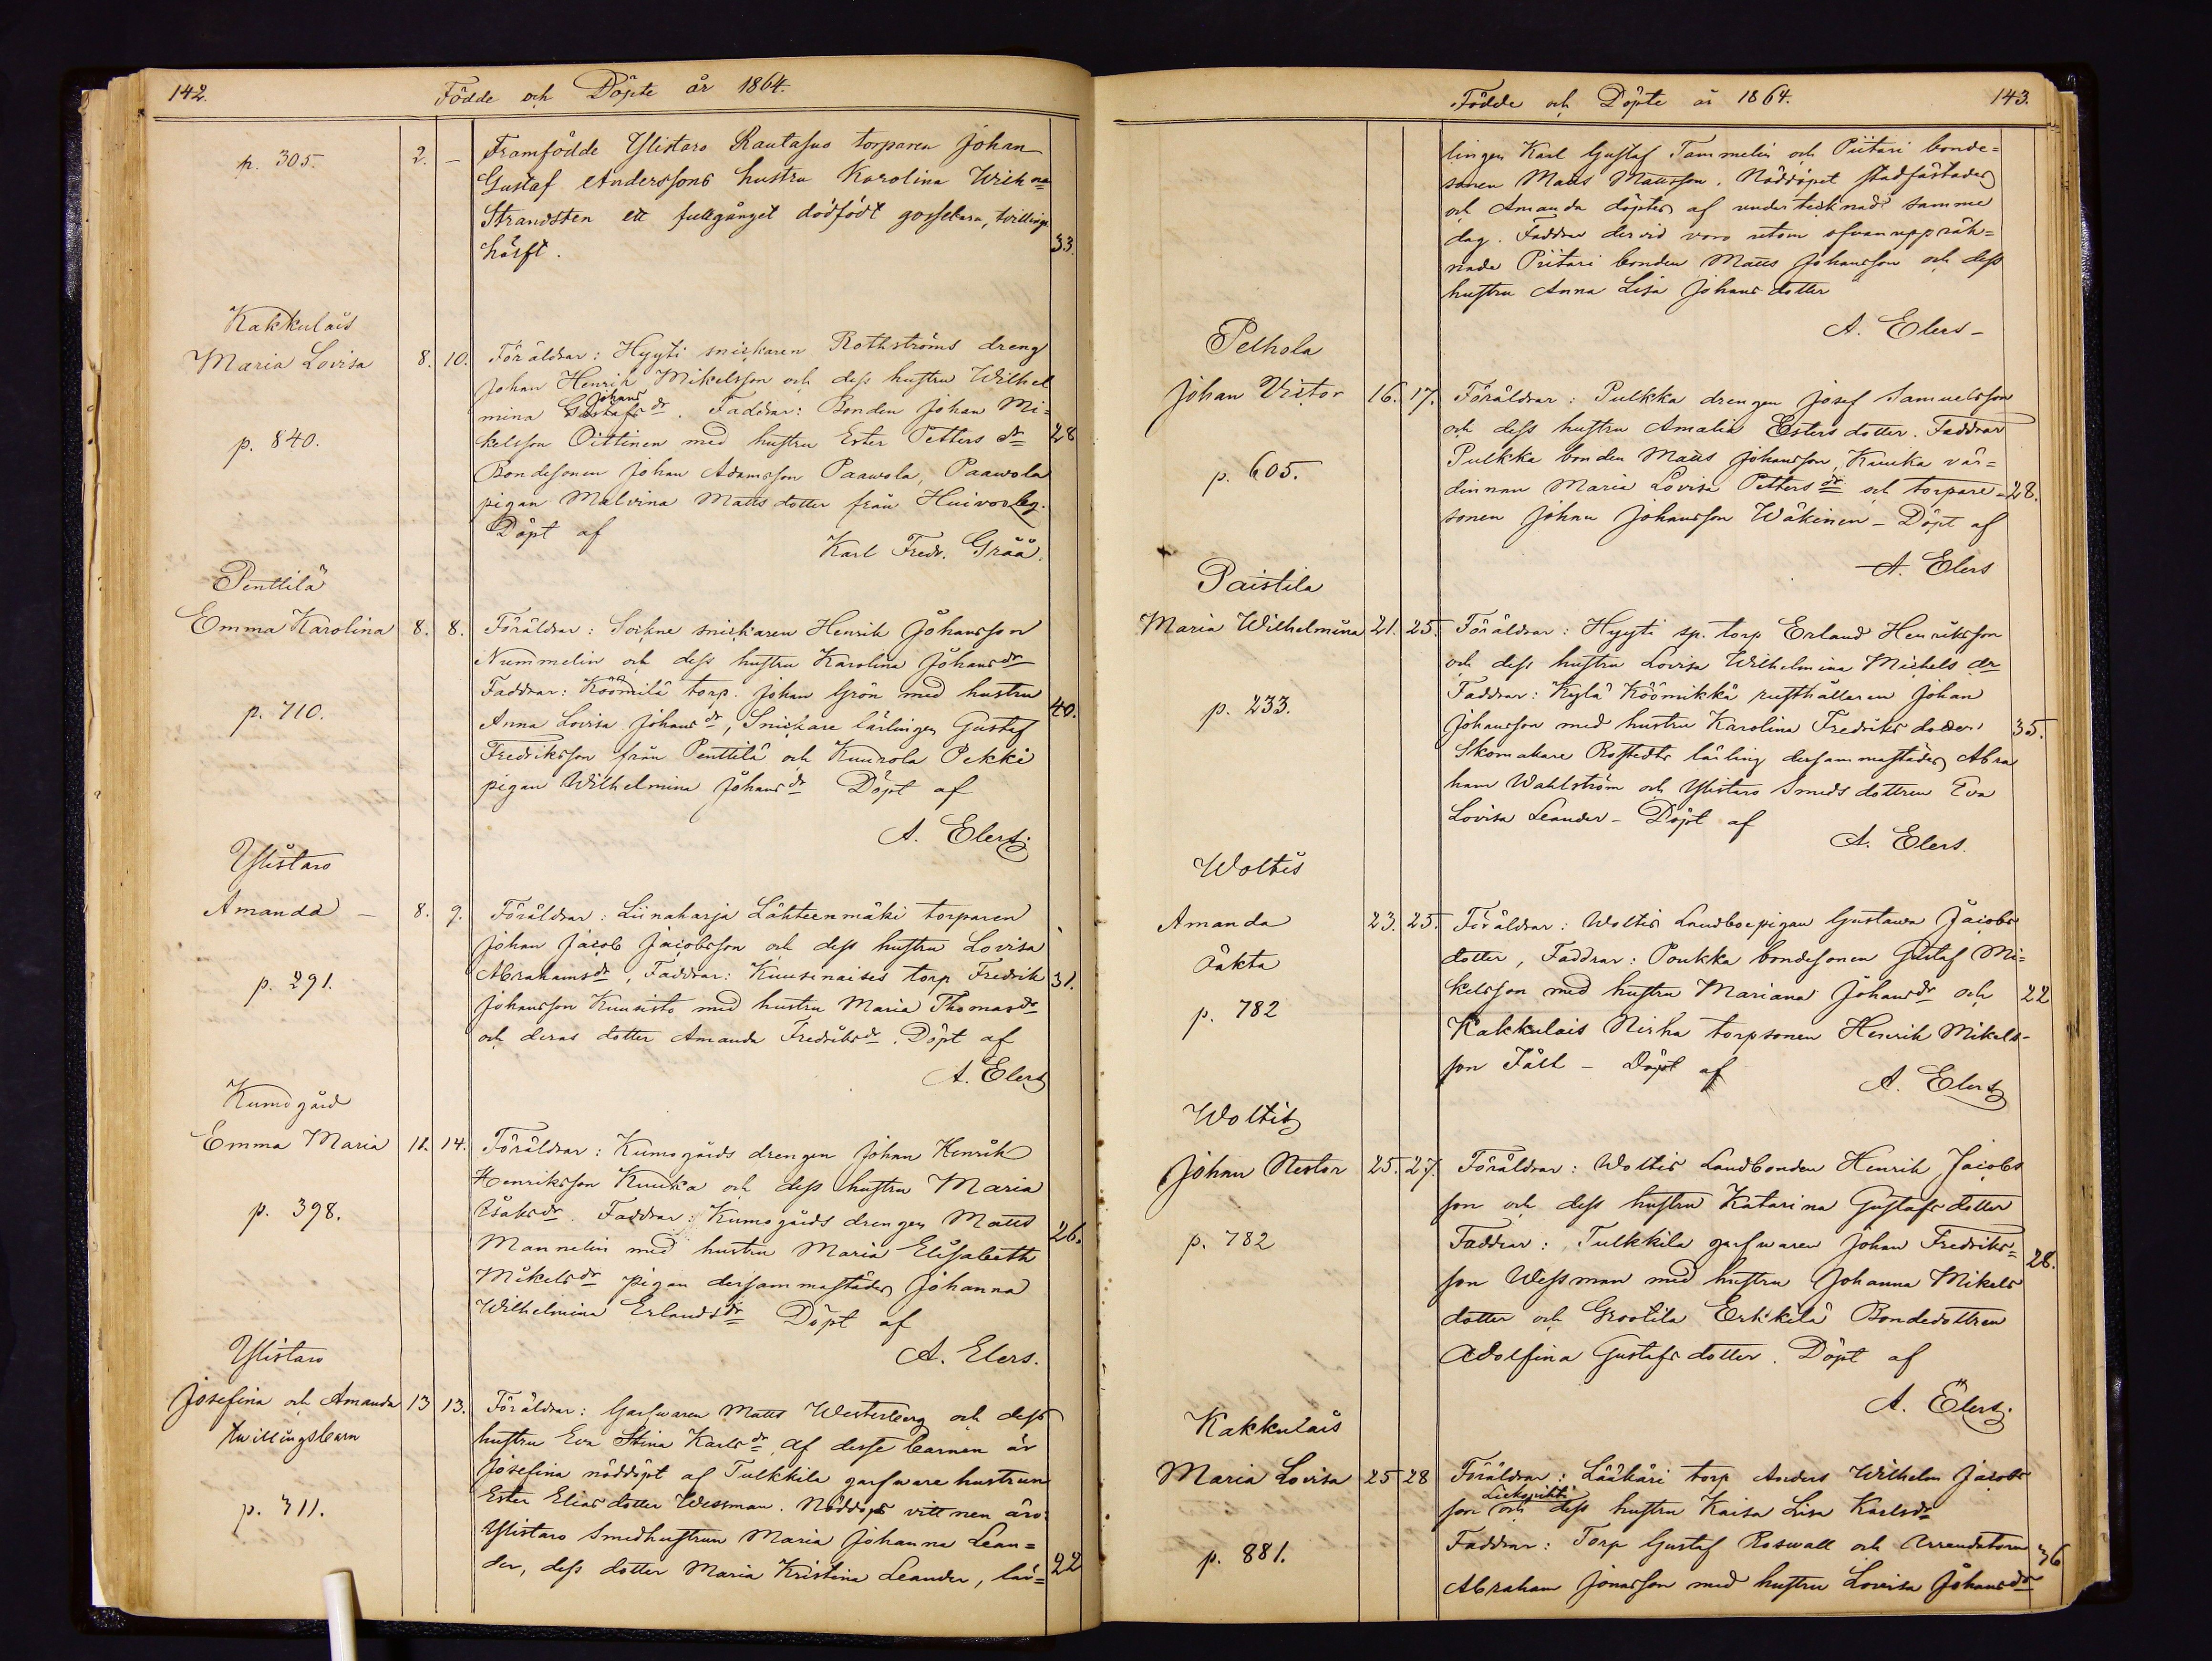 142.
Födde och Döpte år 1864.
p. 305.
2. –
Framfödde Ylistaro Rautasuo torparen Johan
Gustaf Anderssons hustru Karolina Wilh.na
Strandsten ett fullgånget dödfödt gossebarn, tvillings
hälft.
33.
Kakkulais
Maria Lovisa
8. 10.
p. 840.
Föräldrar: Hyyti snickaren Rothströms dreng
Johan Henrik Mikelsson och dess hustru Wilhel
Johans
mina Gustafs dr. Faddrar: Bonden Johan Mi=
kelsson Oittinen med hustru Ester Petters dr
28
Bondesonen Johan Adamsson Paawola, Paawola
pigan Malvina Matts dotter från
Döpt af
Karl Fredr. Gråå.
Penttilä
Emma Karolina
8. 8.
p. 710.
Föräldrar: Sockne snickaren Henrik Johansson
Nummelin och dess hustru Karolina Johans dr
Faddrar: Köömilä torp. Johan Grön med hustru
40.
Anna Lovisa Johans dr, Snickare lärlingen Gustaf
Fredriksson från Penttilä och Kuurola Pekki
pigan Wilhelmina Johans dr Döpt af
A. Elers.
Ylistaro
Amanda –
8. 9.
p. 291.
Föräldrar: Liinaharja Lähteenmäki torparen
Johan Jacob Jacobsson och dess hustru Lovisa
Abrahams dr, Faddrar: Kuusinaises torp Fredrik
31.
Johansson Kuusisto med hustru Maria Thomas dr
och deras dotter Amanda Fredriks dr. Döpt af
A. Elers
Kumogård
Emma Maria
11. 14.
p. 398.
Föräldrar: Kumogårds drengen Johan Henrik
Henriksson Kuuka och dess hustru Maria
Isaks dr. Faddrar: Kumogårds drengen Matts
26.
Mannelin med hustru Maria Elisabeth
Mikels dr pigan dersammastädes Johanna
Wilhelmina Erlands dr Döpt af
A. Elers.
Ylistaro
Josefina och Amanda
13 13.
twillingsbarn
p. 311.
Föräldrar: Garfwaren Matts Westerberg och dess
hustru Eva Stina Karls dr. Af desse barnen är
Josefina nöddöpt af Tulkkila garfware hustrun
Ester Elias dotter Wessman. Nöddops vittnen äro:
Ylistaro Smedhustrun Maria Johanna Lean=
der, dess dotter Maria Kristina Leander, lär=
22
Födde och Döpte år 1864.
143.
lingen Karl Gustaf Tammelin och Piitari bonde=
sonen Matts Mattsson. Nöddopet stadfästades
och Amanda döptes af undertecknad samme
dag. Faddrar dervid voro utom ofvanuppräk=
nade Piitari bonden Matts Johansson och dess
hustru Anna Lisa Johans dotter
A. Elers –
Pelhola
Johan Victor
16. 17.
p. 605.
Föräldrar: Pulkka drengen Josef Samuelsson
och dess hustru Amalia Esters dotter. Faddrar
Pulkka bonden Matts Johansson, Kuuka vär=
dinnan Maria Lovisa Petters dr och torpare=
28.
sonen Johan Johansson Wäkinen – Döpt af
A. Elers
Paistila
Maria Wilhelmina
21. 25.
p. 233.
Föräldrar: Hyyti sp. torp Erland Henriksson
och dess hustru Lovisa Wilhelmina Michels dr
Faddrar: Kylä Köömikkä rusthållaren Johan
Johansson med hustru Karolina Fredriks dotter,
35.
Skomakare Rostedts lärling dersammastädes Abra
ham Wahlström och Ylistaro Smeds dottren Eva
Lovisa Leander – Döpt af
A. Elers.
Woltis
Amanda
23. 25.
Oäkta
p. 782
Föräldrar: Woltis Landboepigan Gustava Jacobs
dotter, Faddrar: Poukka bondesonen Gustaf Mi=
kelsson med hustru Mariana Johans dr och
22
Kakkulais Nirha torpsonen Henrik Mikels-
son Fält – Döpt af
A. Elers
Woltis
Johan Nestor
25. 27.
p. 782
Föräldrar: Woltis Landbonden Henrik Jacobs
son och dess hustru Katarina Gustafs dotter
Faddrar: Tulkkila garfwaren Johan Fredriks=
28.
son Wessman med hustru Johanna Mikels
dotter och Grootila Erkkilä Bondedottren
Adolfina Gustafs dotter. Döpt af
A. Elers.
Kakkulais
Maria Lovisa
25 28
p. 881.
Föräldrar: Lääkäri torp Anders Wilhelm Jacobs
son och dess hustru Kaisa Lisa Karlsdr
Faddrar: Torp Gustaf Roswall och Arrendatorn
36
Abraham Jonasson med hustru Lovisa Johans dr